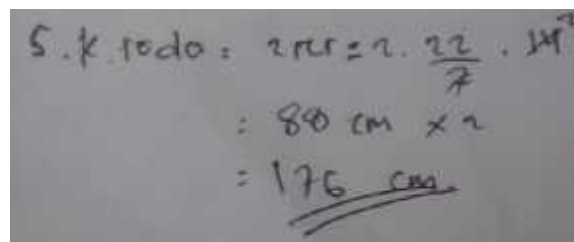 5. K. roda = 2πr = 2. 22/7 . 14 2
= 88 cm x 2
= 176 cm